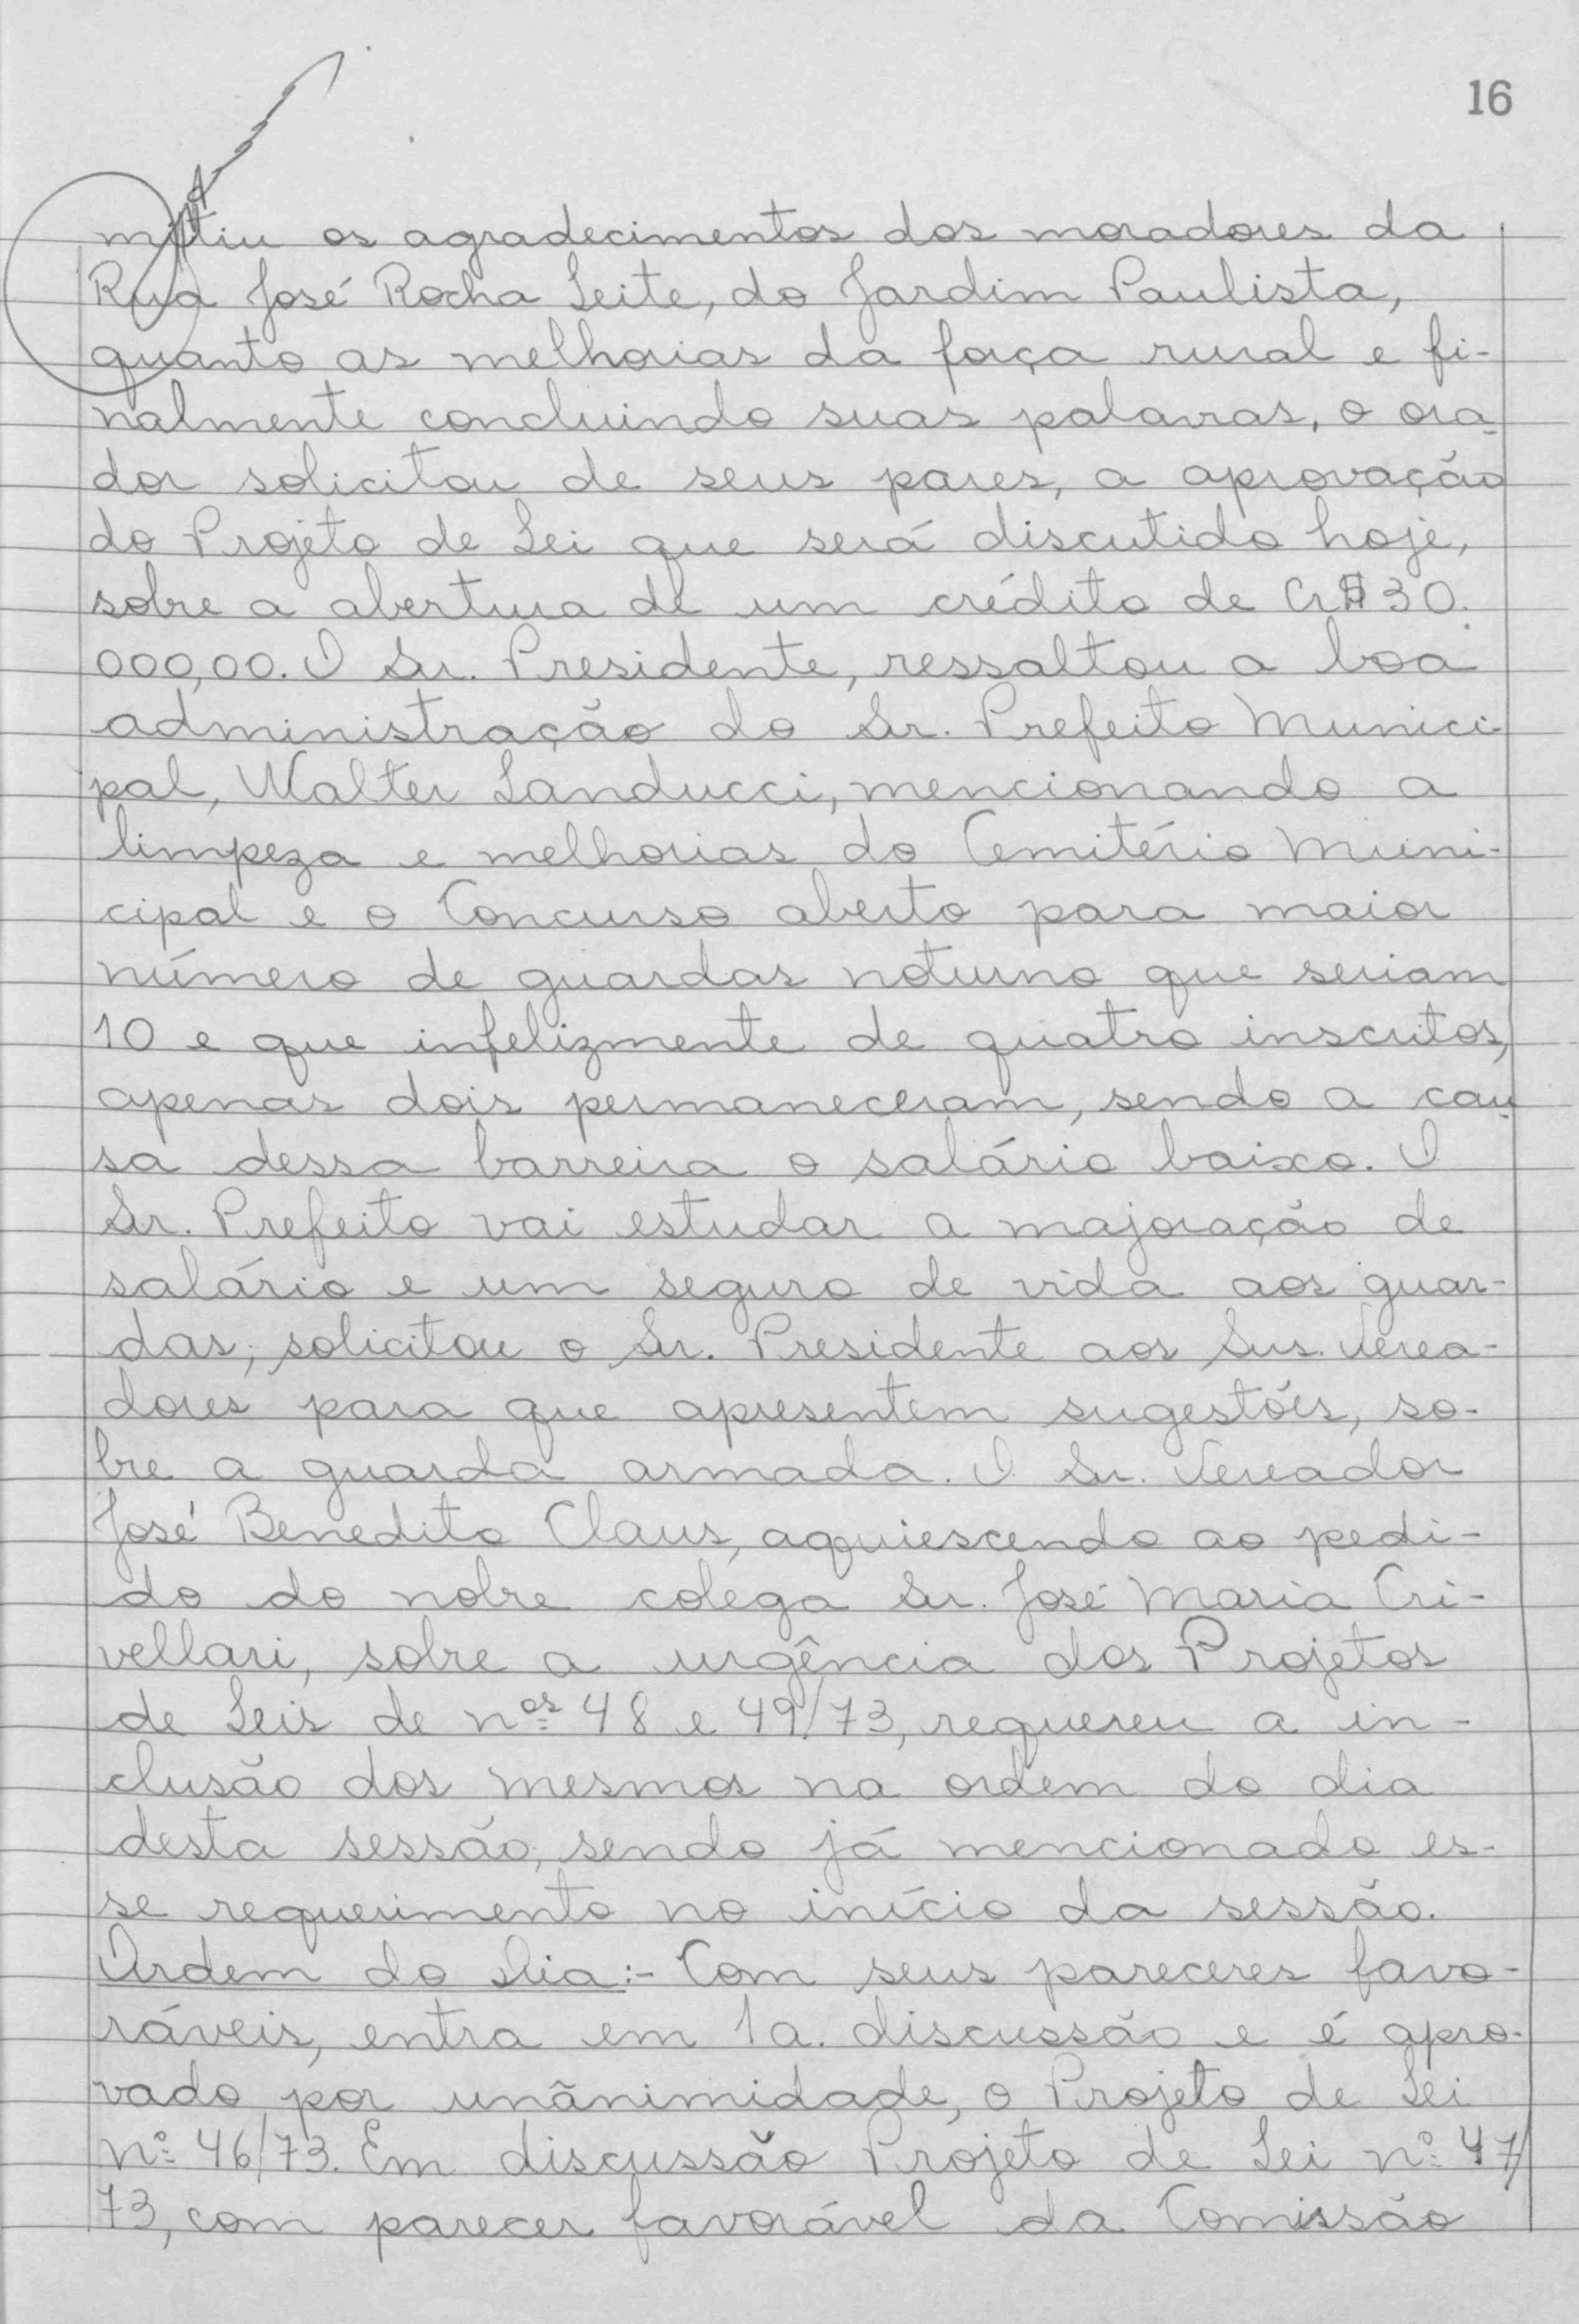 16
mitiu os agradecimentos dos moradores da
Rua José Rocha Leite, do Jardim Paulista,
quanto as melhorias da força rural e fi-
nalmente concluindo suas palavras, o ora-
dor solicitou de seus pares, a aprovação
do Projeto de Lei que será discutido hoje,
sobre a abertura de um crédito de Cr$ 30.
000,00. O Sr. Presidente, ressaltou a boa
administração do Sr. Prefeito Munici-
pal, Walter Landucci, mencionando a
limpeza e melhorias do Cemitério Muni-
cipal e o Concurso aberto para maior
número de guardas noturno que seriam
10 e que infelizmente de quatro inscritos,
apenas dois permaneceram, sendo a cau-
sa dessa barreira o salário baixo. O
Sr. Prefeito vai estudar a majoração de
salário e um seguro de vida aos guar-
das; solicitou o Sr. Presidente aos Srs. Verea-
dores para que apresentem sugestões, so-
bre a guarda armada. O Sr. Vereador
José Benedito Claus, aquiescendo ao pedi-
do do nobre colega Sr. José Maria Cri-
vellari, sobre a urgência dos Projetos
de Leis de nos. 48 e 49/73, requereu a in-
clusão dos mesmos na ordem do dia
desta sessão, sendo já mencionado es-
se requerimento no início da sessão.
Ordem do Dia:- Com seus pareceres favo-
ráveis, entra em 1a. discussão e é apro-
vado por unânimidade, o Projeto de Lei
nº 46/73. Em discussão Projeto de Lei nº 47/
73, com parecer favorável da Comissão